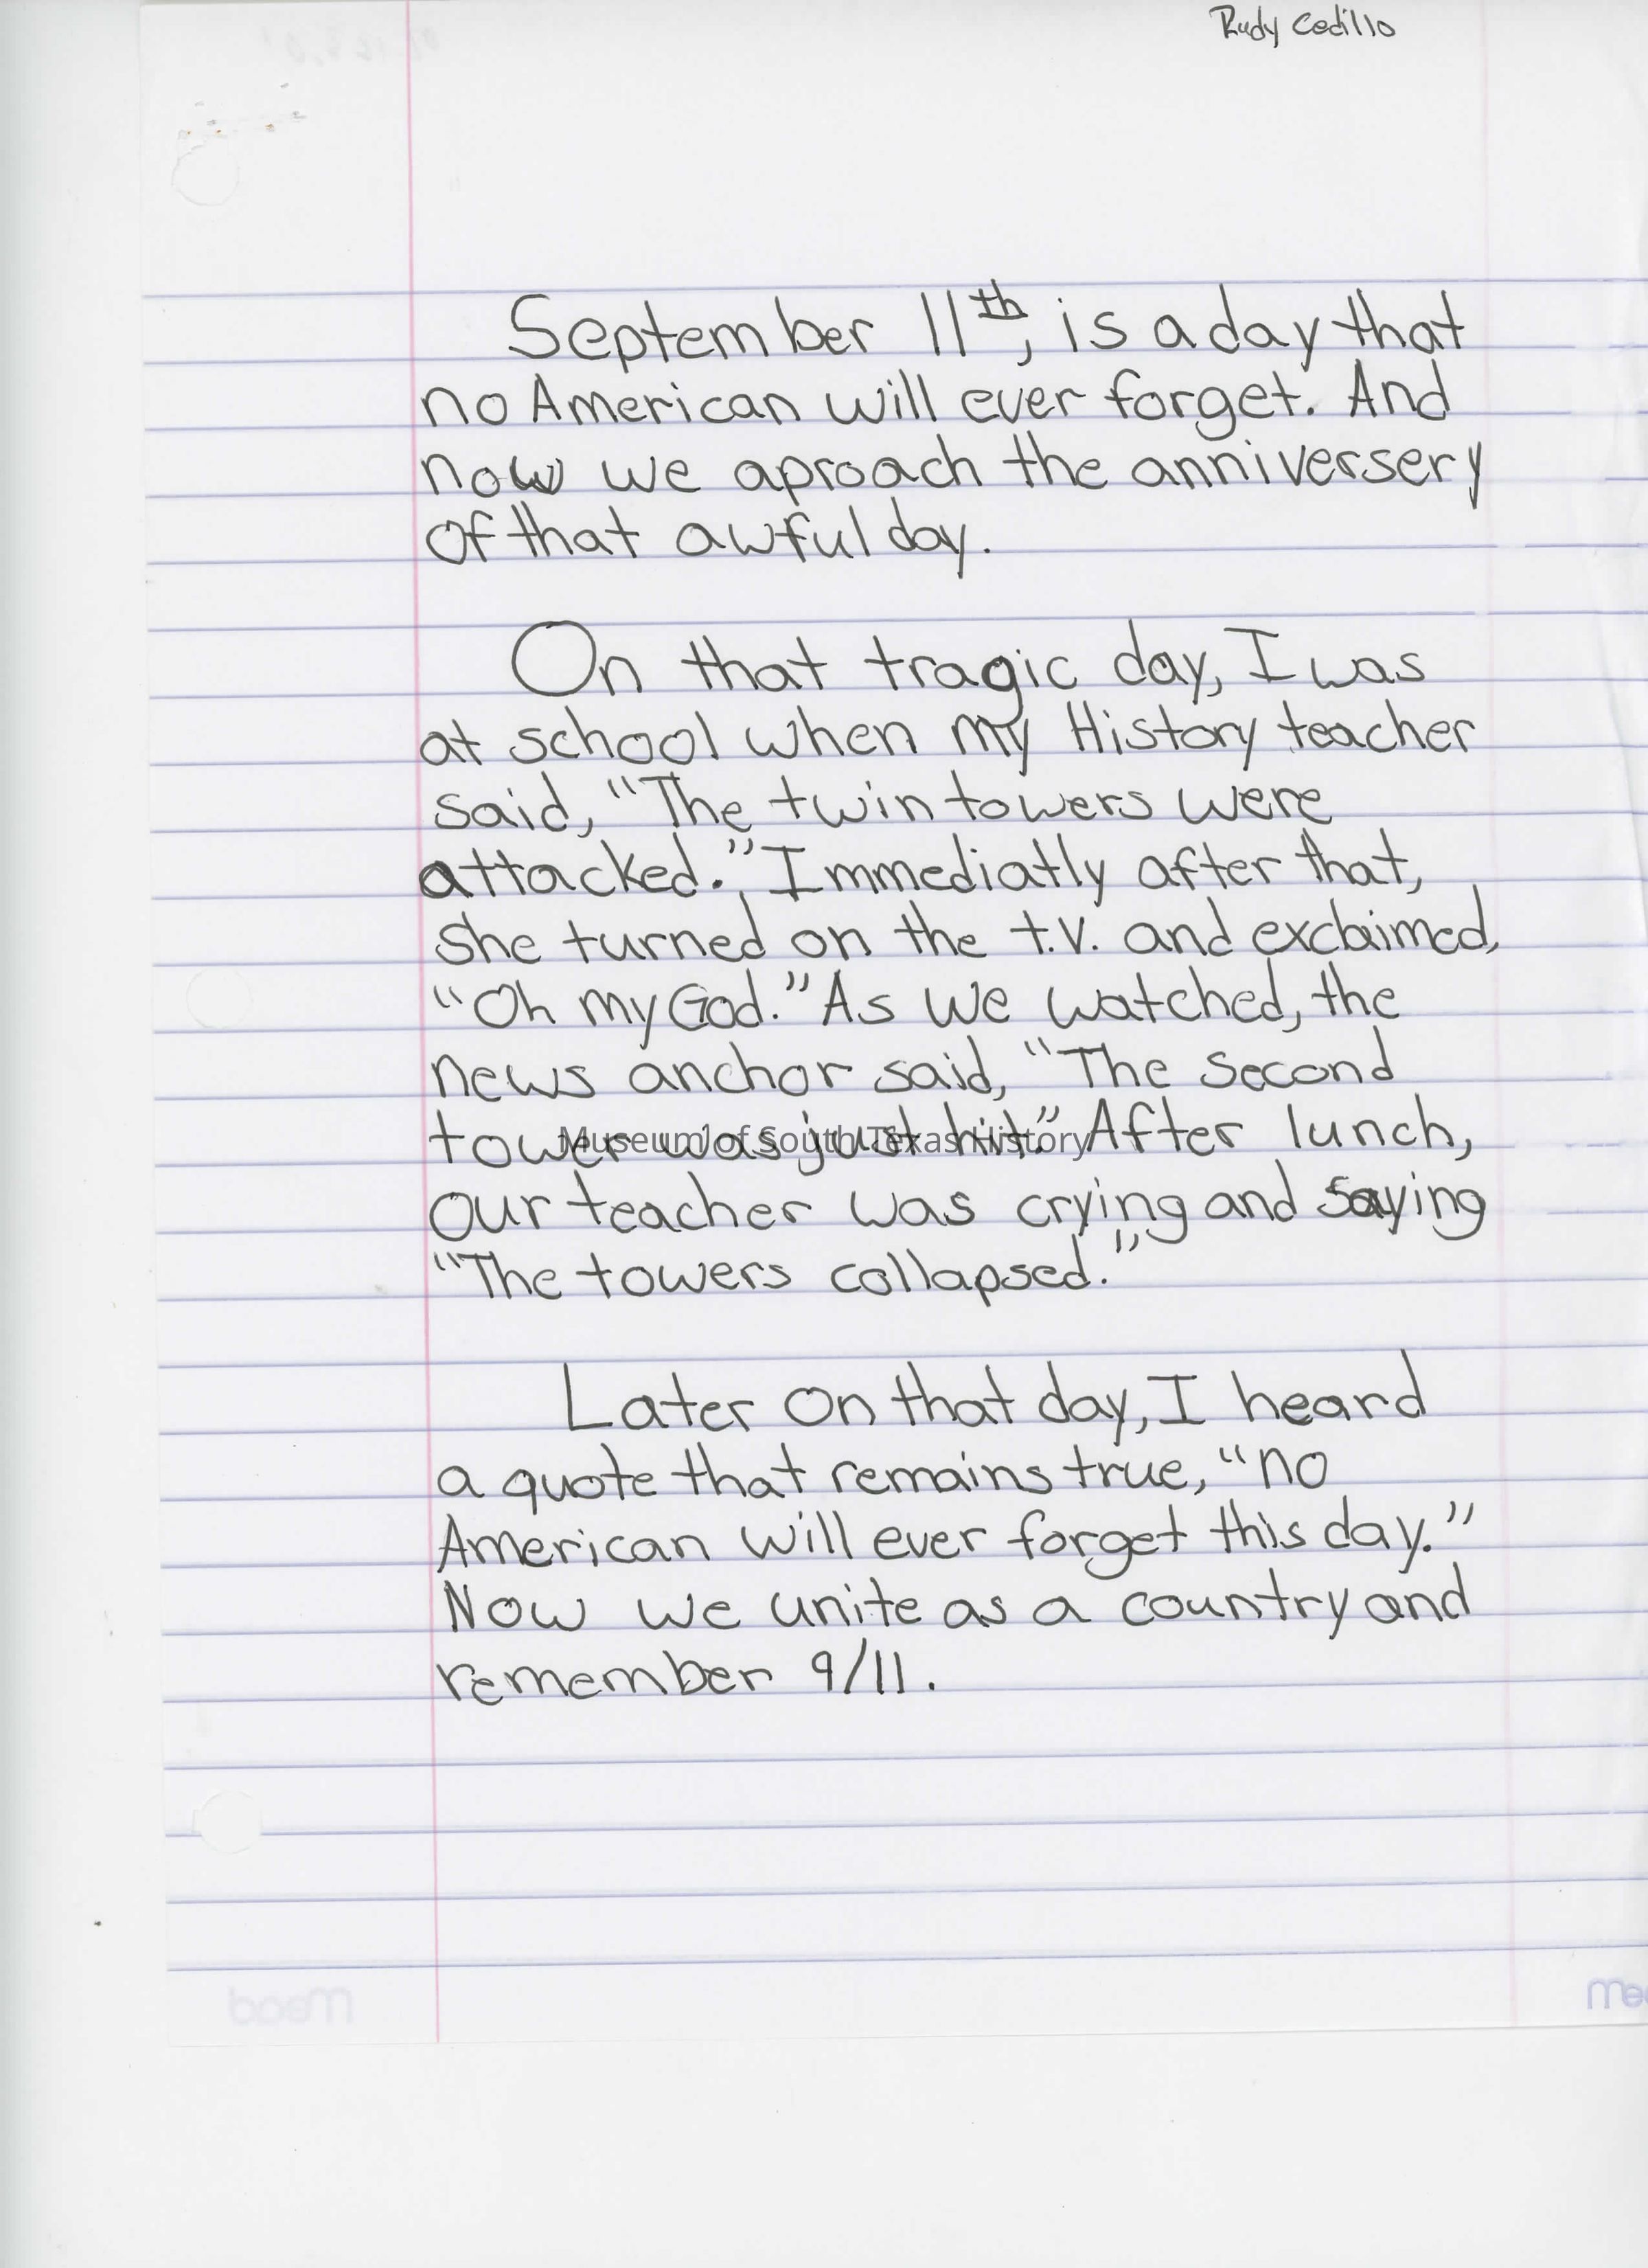 Rudy Cedillo
September 11th, is a day that
no American will ever forget. And
now we aproach the anniversery
of that awful day.
On that tragic day, I was
at school when my History teacher
said, "The twin towers were
attacked." Immediatly after that,
she turned on the t.v. and exclaimed,
"Oh my God." As we watched, the
news anchor said, "The second
tower was just hit." After lunch,
Museum of South Texas History
our teacher was crying and saying
"The towers collapsed."
Later on that day, I heard
a quote that remains true, "no
American will ever forget this day."
Now we unite as a country and
remember 9/11.
Mead